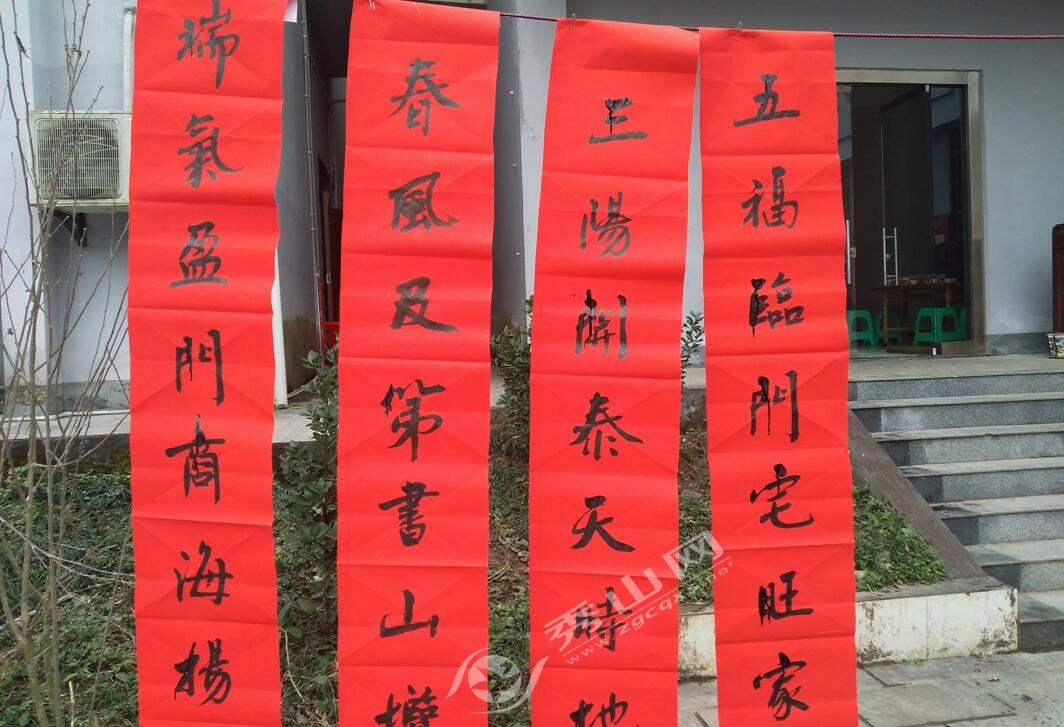 五福臨門宅旺家
三陽開泰天時地
春風及第書山攀
瑞氣盈門商海揚
秀山网
www.zgcqxs.net